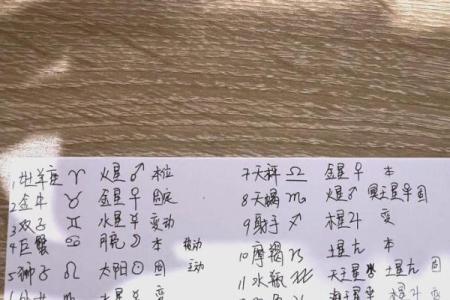 1.牡羊座 ♈ 火星♂ 本位
2金牛 ♉ 金星♀ 固定
3双子 ♊ 水星☿ 变动
4巨蟹 ♋ 月亮☽ 本 被动
5狮子 ♌ 太阳☉ 固 主动
水星☿ 变
7天秤 ♎ 金星♀ 本
8天蝎 ♏ 火星♂ 冥王星 固
9射手 ♐ 木星♃ 变
10摩羯 ♑ 土星♄ 本
11水瓶 天王星 土星♄ 固
海王星 木星♃ 变